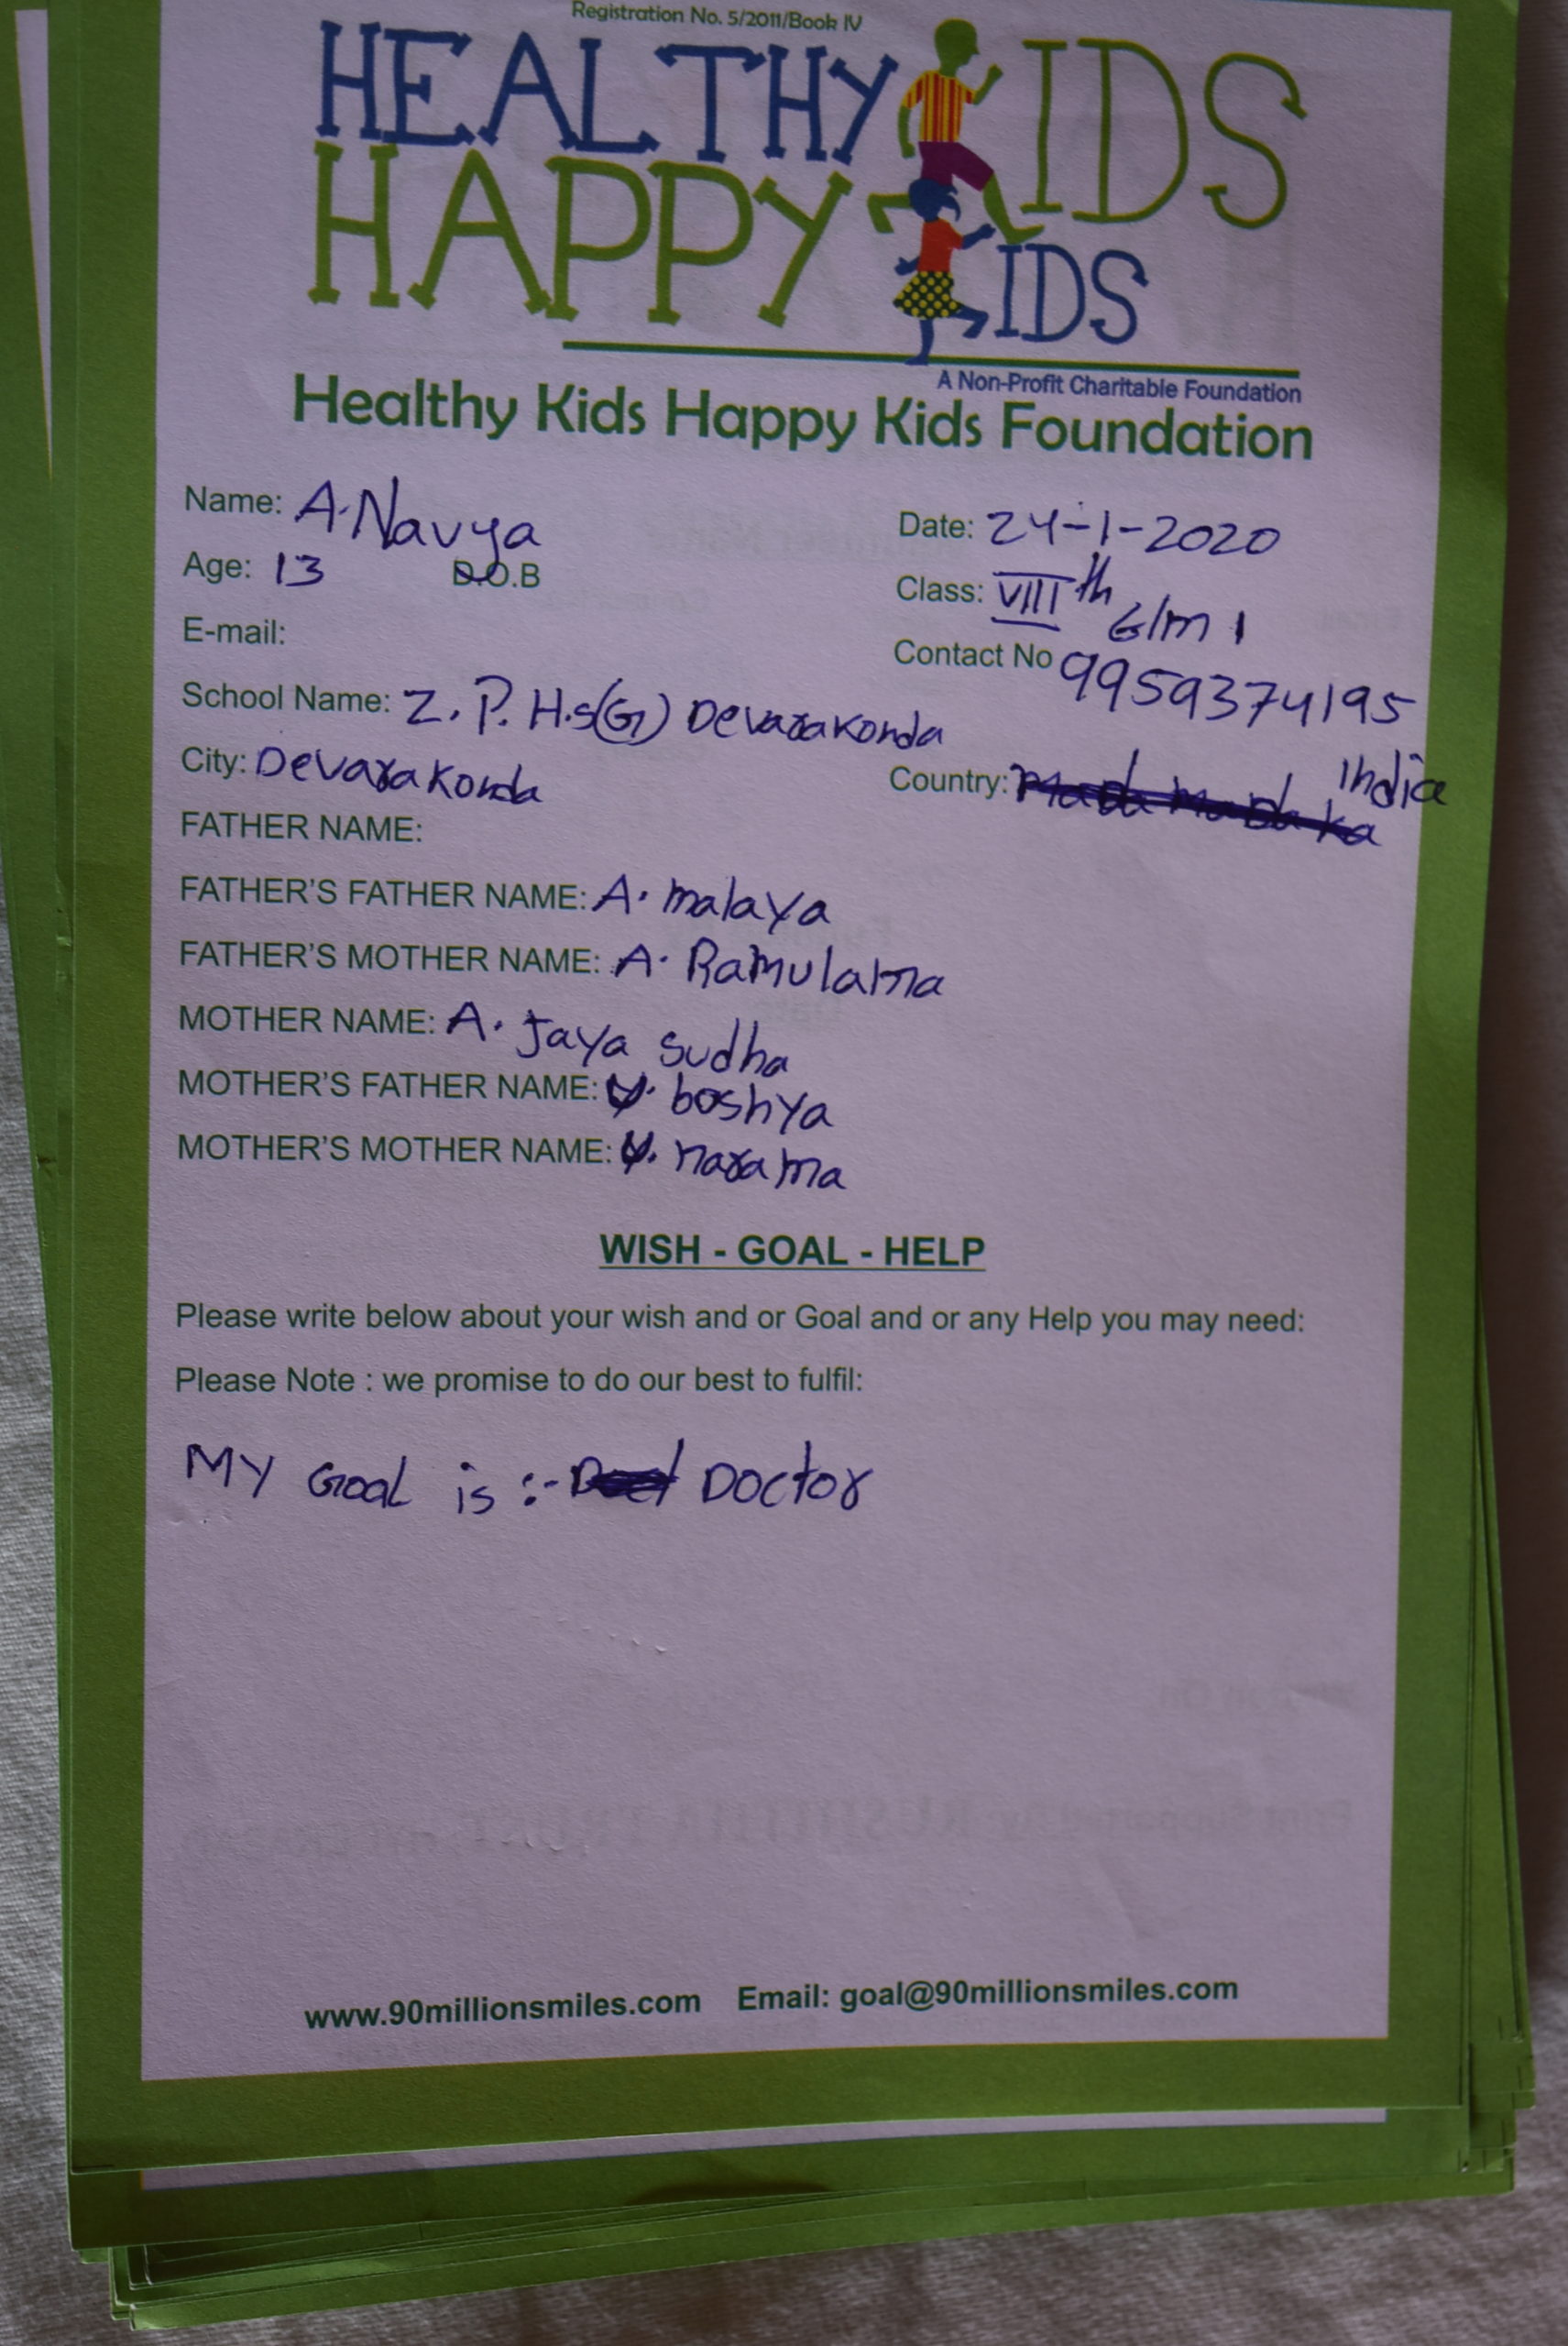 Registration No. 5/2011/Book IV
HEALTHY KIDS
HAPPY KIDS
A Non-Profit Charitable Foundation
Healthy Kids Happy Kids Foundation
Name: A. Navya
Date: 24-1-2020
Age: 13 D.O.B
Class: VIIIth E/m 1
E-mail:
Contact No 9959374195
School Name: Z. P. H.s(G) Devarakonda
City: Devarakonda
Country: India
FATHER NAME:
FATHER'S FATHER NAME: A. malaya
FATHER'S MOTHER NAME: A. Ramulama
MOTHER NAME: A. Jaya Sudha
MOTHER'S FATHER NAME: boshya
MOTHER'S MOTHER NAME: narama
WISH - GOAL - HELP
Please write below about your wish and or Goal and or any Help you may need:
Please Note : we promise to do our best to fulfil:
MY Goal is :- Doctor
www.90millionsmiles.com Email: goal@90millionsmiles.com